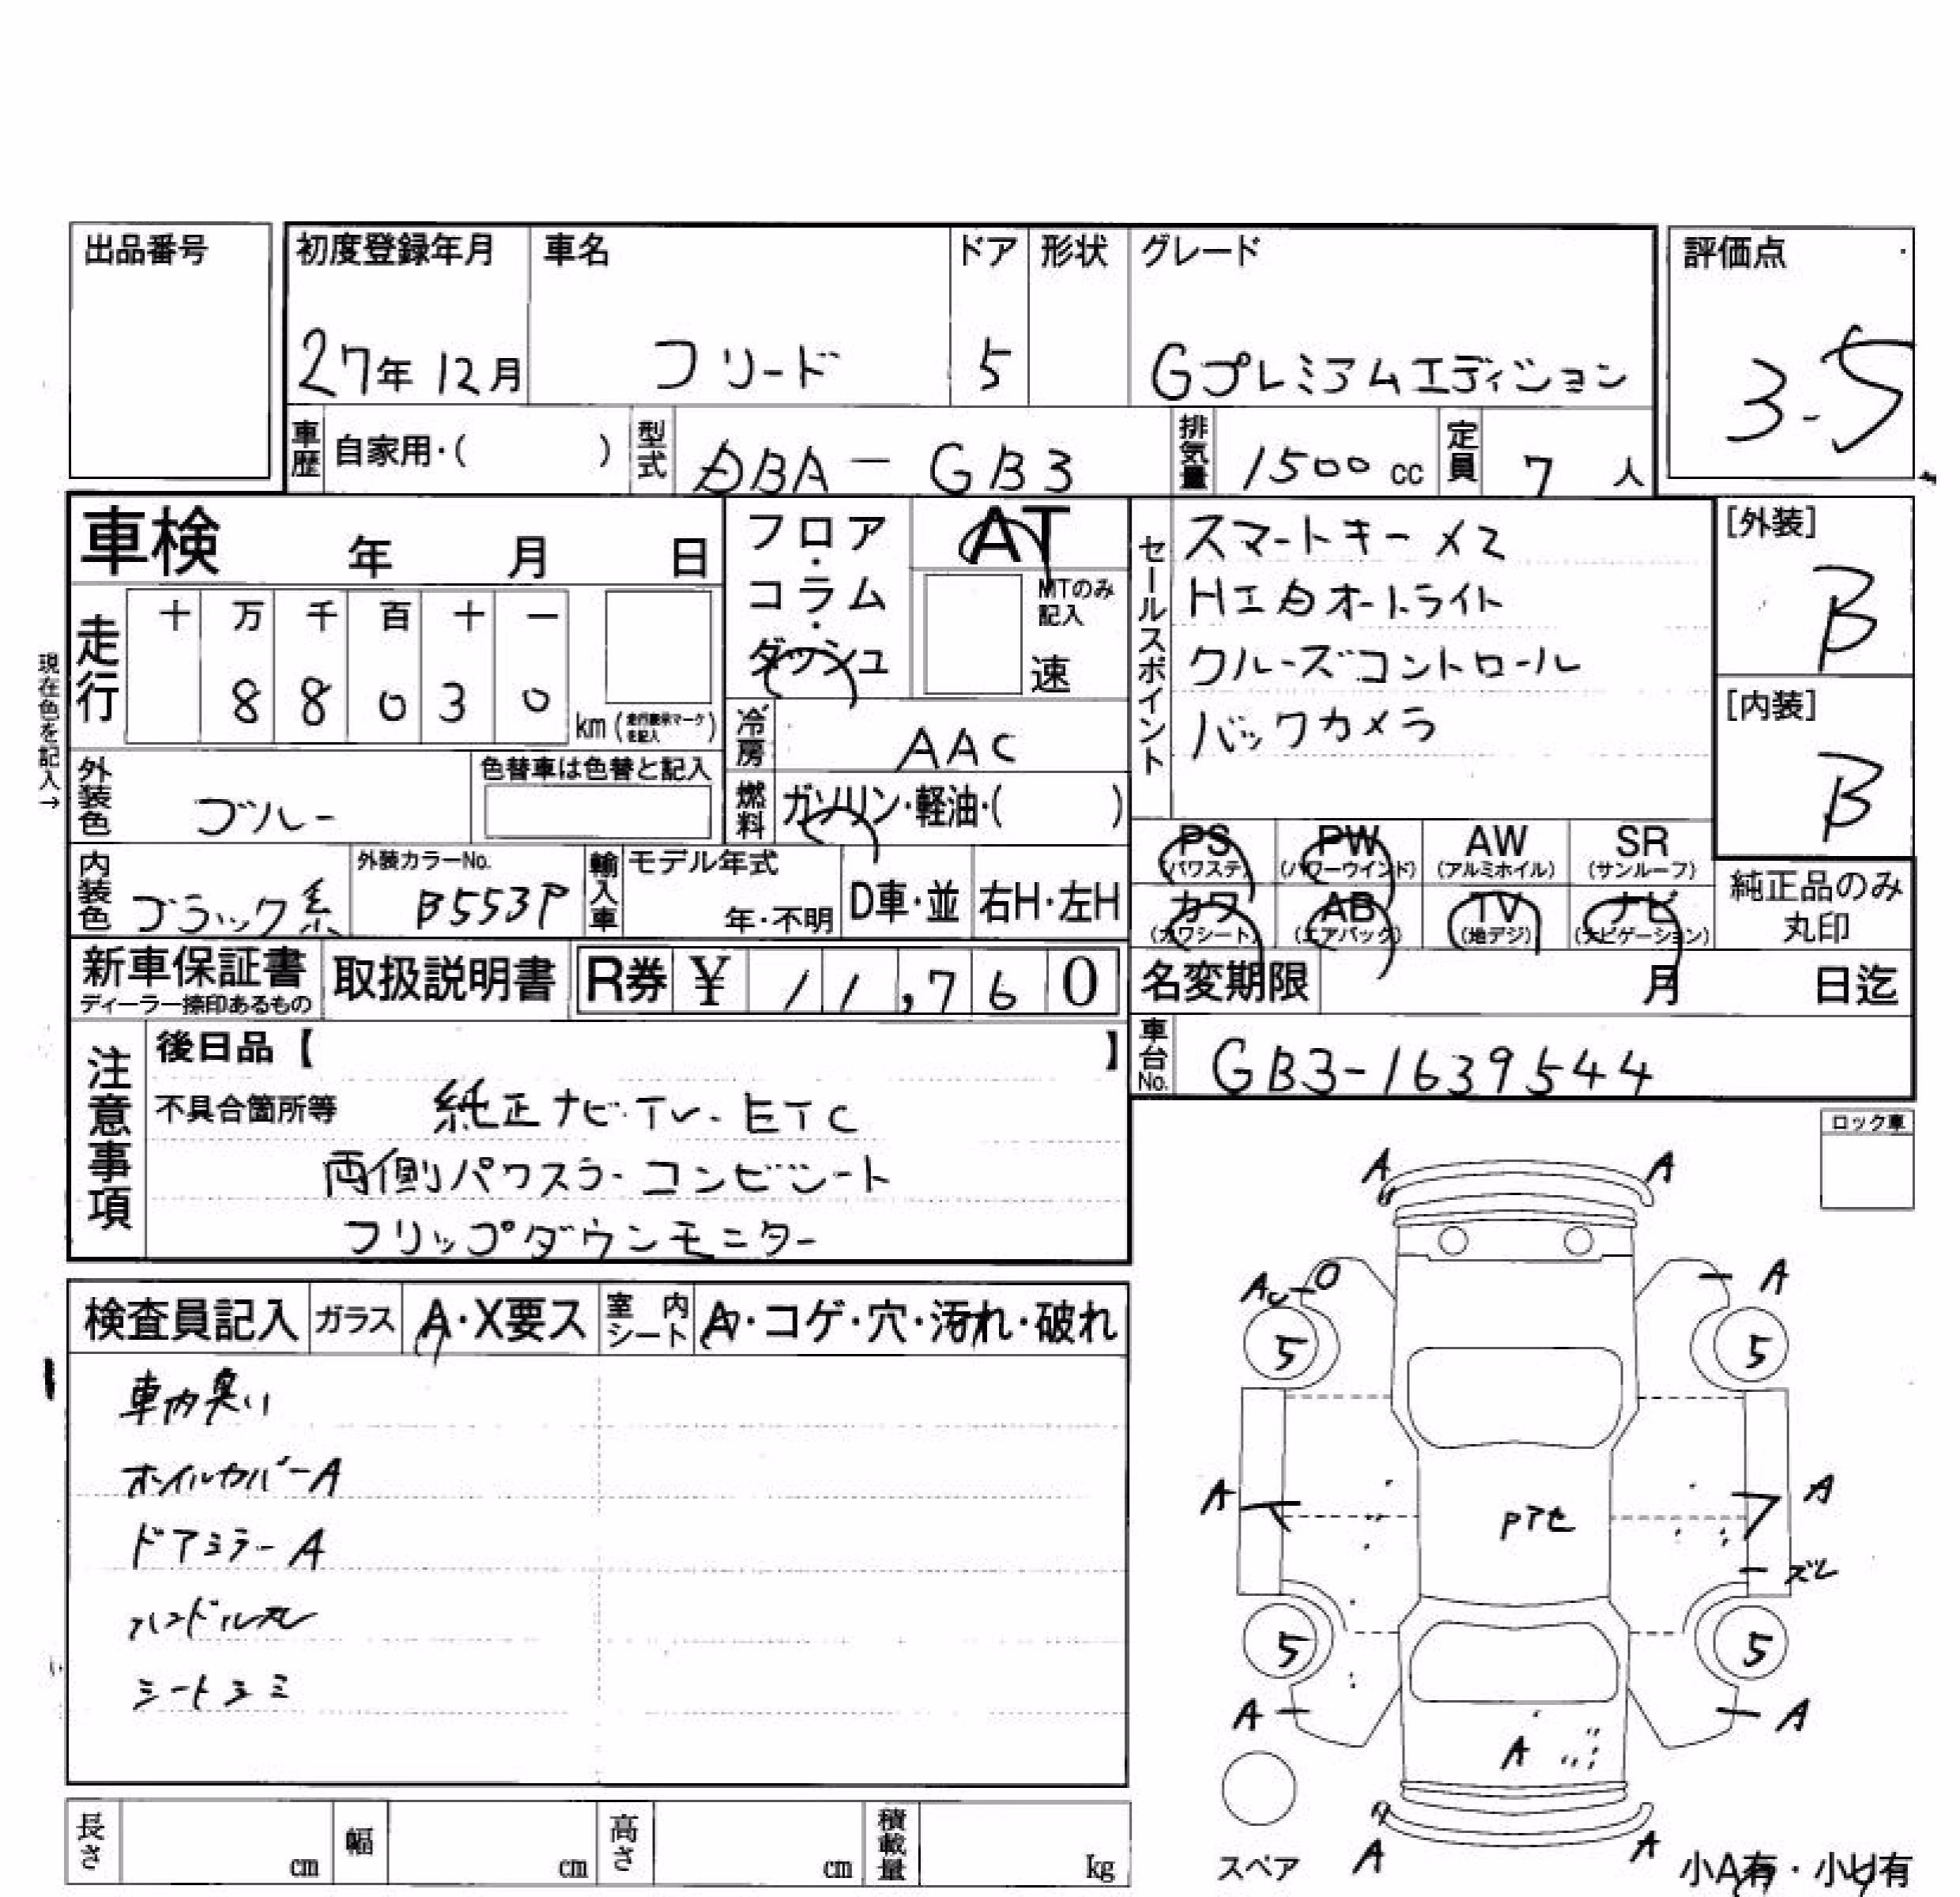 出品番号
初度登録年月 車名 ドア 形状 グレード 評価点
27年 12月 フリード 5 Gプレミアムエディション 3.5
車歴 自家用・( ) 型式 DBA-GB3 排気量 1500cc 定員 7人
車検 年 月 日
フロア・コラム・ダッシュ
AT
MTのみ記入
速
現在色を記入→
走行 十 万 千 百 十 一
8 8 0 3 0 km (走行表示マークを記入)
冷房 AAC
燃料 ガソリン・軽油・( )
外装色 ブルー 色替車は色替と記入
内装色 ブラック系 外装カラーNo. B553P 輸入車 モデル年式 年・不明 D車・並 右H・左H
セールスポイント
スマートキー×2
HIDオートライト
クルーズコントロール
バックカメラ
[外装]
B
[内装]
B
PS (パワステ) PW (パワーウインド) AW (アルミホイル) SR (サンルーフ)
カワ (カワシート) AB (エアバック) TV (地デジ) ナビ (ナビゲーション)
純正品のみ
丸印
新車保証書 ディーラー捺印あるもの 取扱説明書 R券 ¥ 11,760
名変期限 月 日迄
車台No. GB3-1639544
注意事項
後日品【 】
不具合箇所等 純正ナビ・TV・ETC
両側パワスラ・コンビシート
フリップダウンモニター
ロック車
検査員記入 ガラス A・X要ス 室内シート A・コゲ・穴・汚れ・破れ
車内臭い
ホイルカバーA
ドアミラーA
ハンドルスレ
シートシミ
A A
A
5 5
A A
アセ
ズレ
5 5
A A
A
A A
スペア
小A有・小U有
長さ cm 幅 cm 高さ cm 積載量 kg